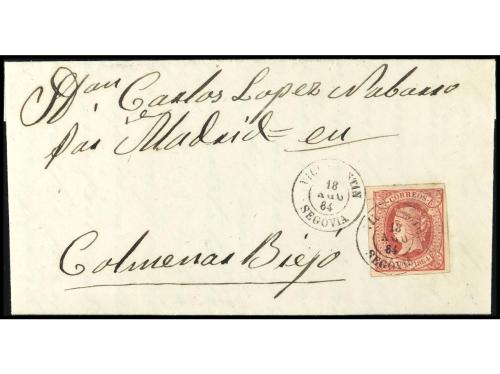 Dⁿ Carlos Lopez Nabarro
Por Madrid = en
Colmenar Biejo
18
AGO
64
SEGOVIA
CORREOS
18
64
SEGOVIA